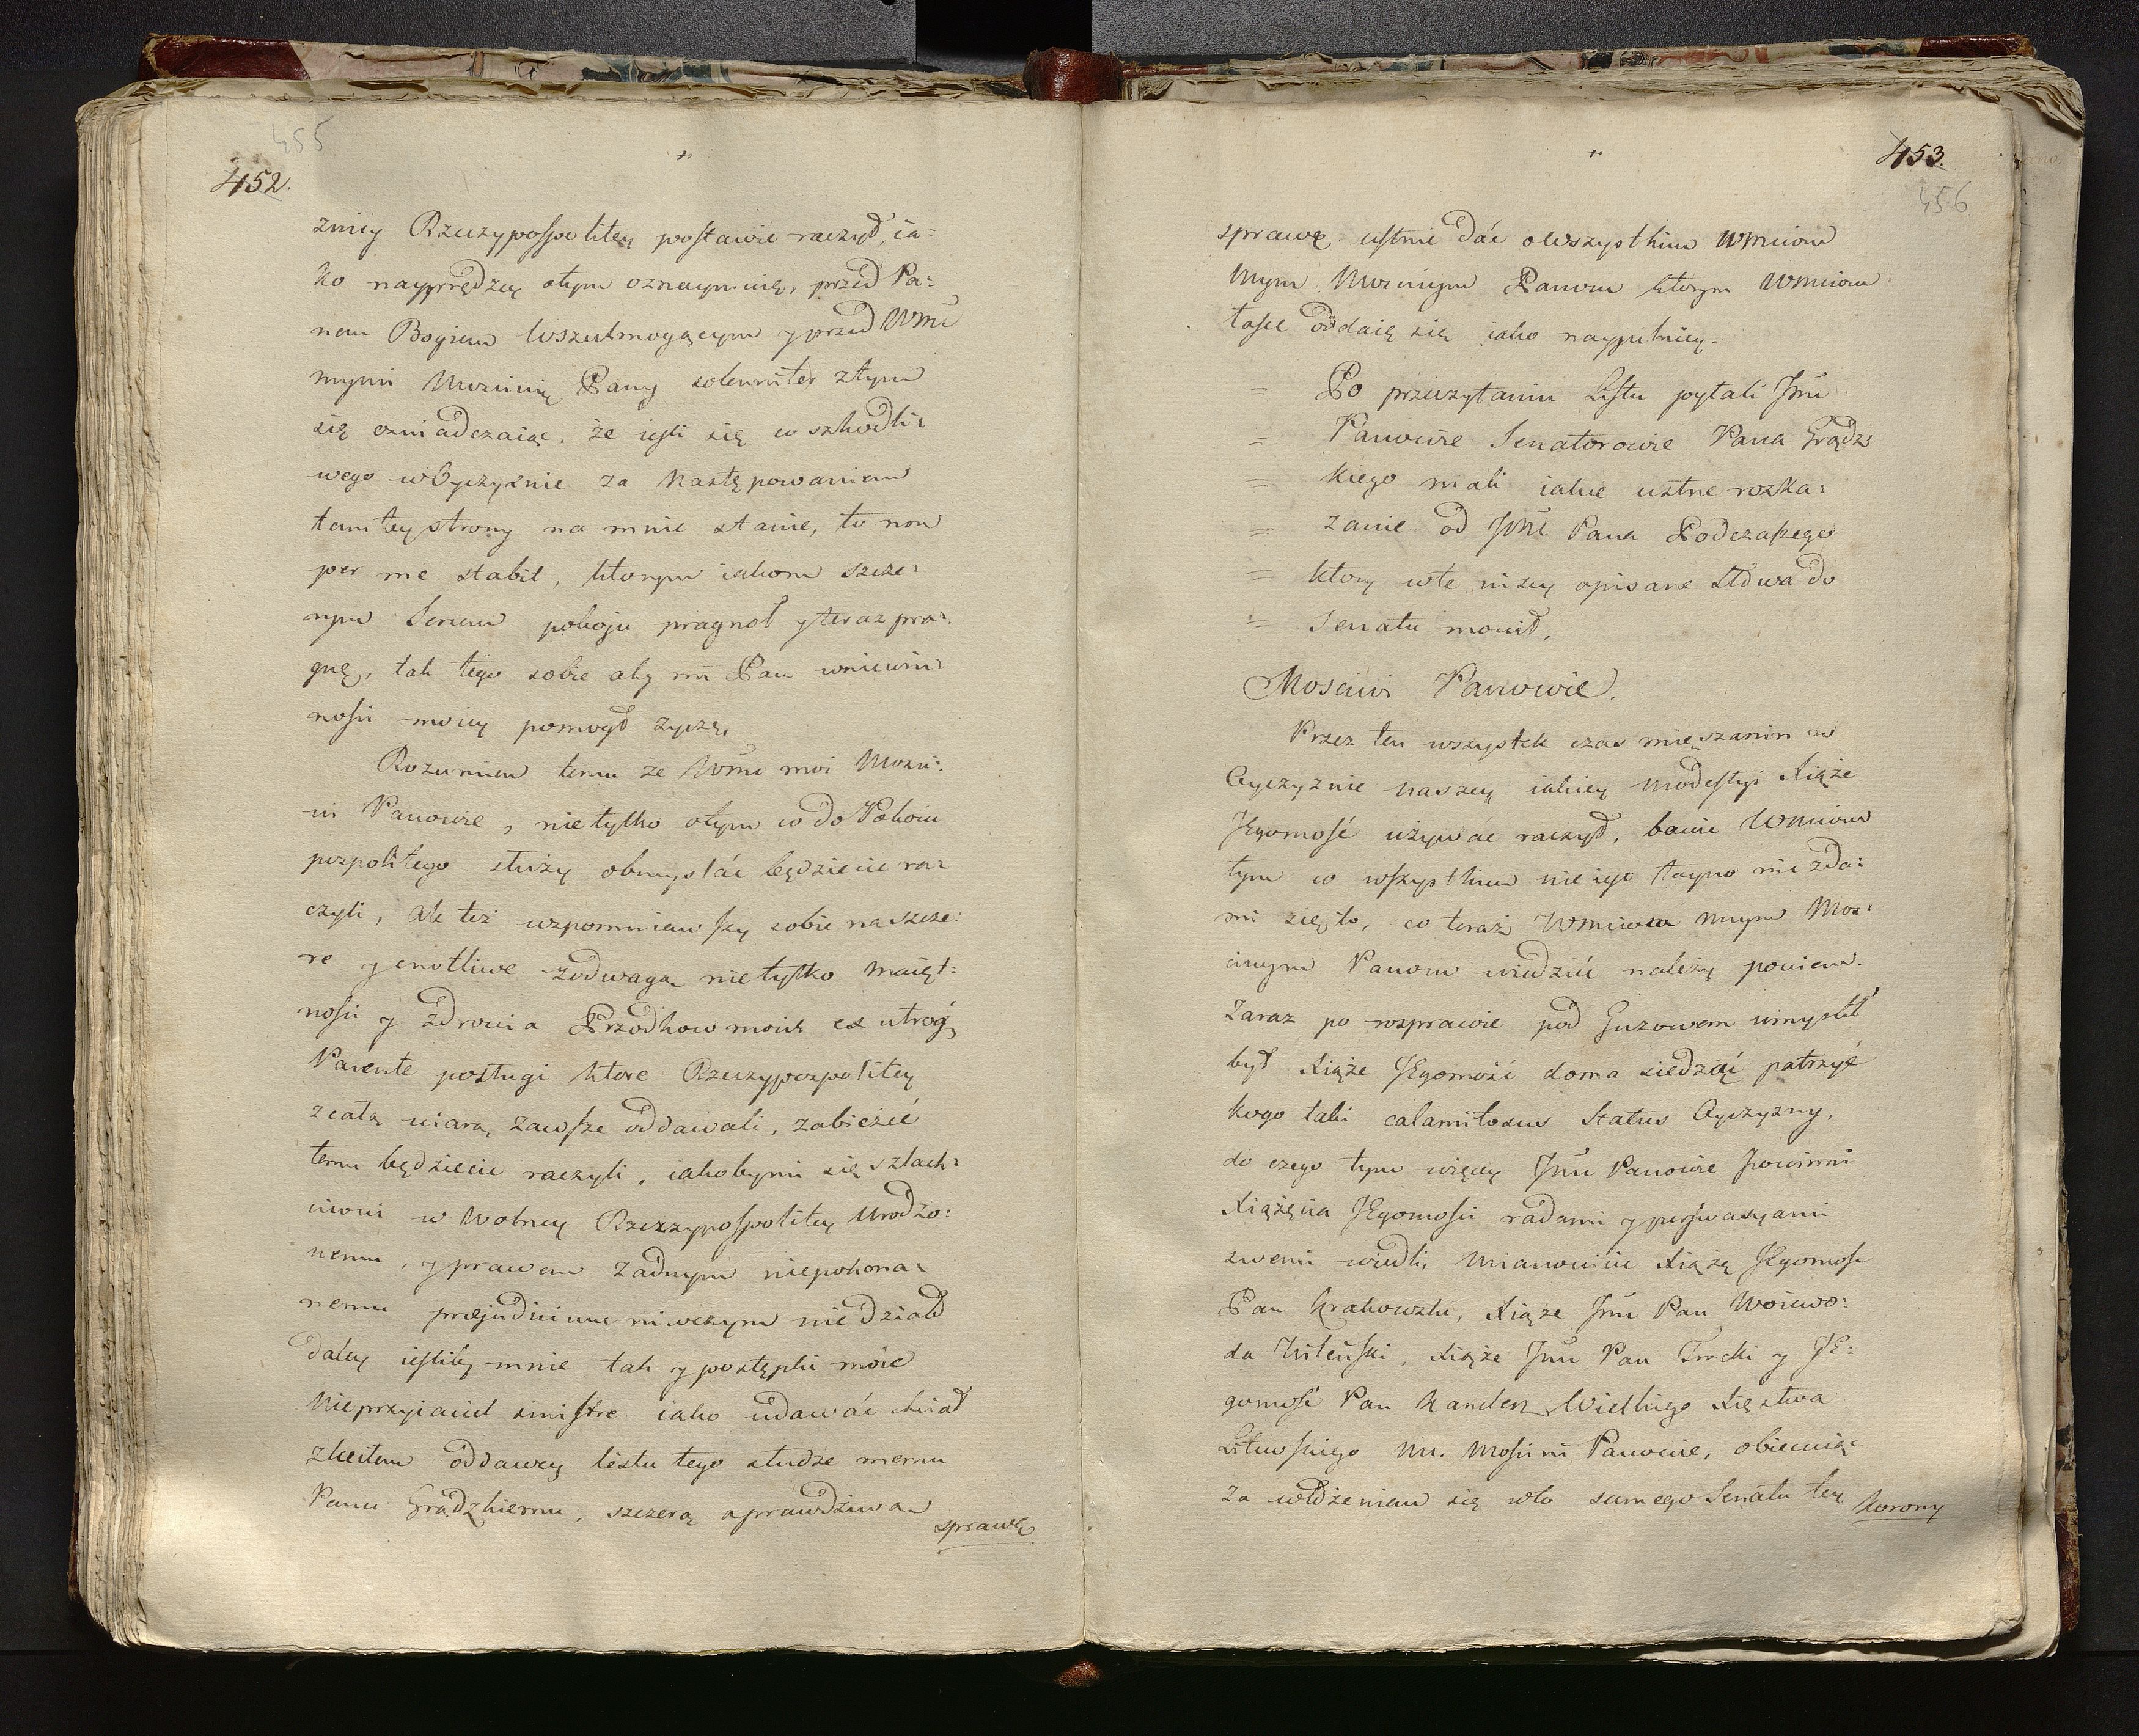 455
452.
zniey Rzeczypospolitey postawie raczył, ia=
ko nayprędzey otym oznaymię, przed Pa=
nem Bogiem Wszechmogącym y przed Wmē
mymi Mczemi Pany solenniter ztym
się oswiadczaiąc. że iesli się co szkodli=
wego w Oyczyznie za następowaniem
tamtey strony na mnie stanie, to non
per me stabit, ktorym iakom szcze=
rym Sercem pokoju pragnoł y teraz pra=
gnę, tak tego sobie aby mi Pan w niewin=
nosci moiey pomogł zyczę.
Rozumiem temu ze Wmē moi Mczi=
wi Panowie, nie tylko otym co do Pokoiu
pospolitego służy obmyslać będziecie ra=
czyli, ale też wzpomniawszy sobie na szcze=
re y cnotliwe z odwagą nie tylko maięt=
nosci y zdrowia Przodkow moich ex utroq
Parente posługi ktore Rzeczypospolitey
z całą wiarą zawsze oddawali, zabieżeć
temu będziecie raczyli, iakobymi się szlach=
cicowi w wolney Rzeczypospolitey urodzo=
nemu, y prawem żadnym niepokona=
nemu præjudicium w niwczym nie działo
daley iesliby mnie tak y postępki moie
nieprzyiaciel sinistre iako udawać chciał
zleciłem oddawcy listu tego słudze memu
Panu Grądzkiemu, szczerą a prawdziwą
sprawę
453.
456
sprawę ustnie dać o wszystkim Wmciom
Mym Mczi​wym Panom ktorym Wmciom
łasce oddaię się iako naypilniey.
= Po przeczytaniu Listu pytali Jmć
= Panowie Senatorowie Pana Grądz=
= kiego mali iakie ustne rozka=
= zanie od Jmć Pana Podczaszego
= ktory w te niżey opisane słowa do
= Senatu mowił.
Mosciwi Panowie.
Przez ten wszystek czas mieszanin w
Oyczyznie naszey iakiey modestyi Xiąże
JEgomość używać raczył, bacie Wmciom
tym w wszystkim nie iest tayno nie zda=
mi się to, co teraz Wmciom mym Mos=
ciwym Panom wiedzieć należy powiem.
Zaraz po rozprawie pod Guzowem umyslił
był Xiąże JEgomość doma siedzieć patrzyć
kogo taki calamitosus Status Oyczyzny,
do czego tym więcey Jmć Panowie Powinni
Xiążęcia JEgomosci radami y perswasyami
swemi wiedli, mianowicie Xiążę JEgomość
Pan Krakowski, Xiąże Jmć Pan Woiewo=
da Wileński, Xiąże Jmć Pan Trocki y JE=
gomość Pan Kanclerz Wielkiego Xięstwa
Litewskiego mm. Mosciwi Panowie, obiecuiąc
za włożeniem się w to samego Senatu tey
korony